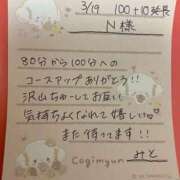 3/19 100+10延長
N様
80分から100分への
コースアップありがとう!!
沢山ちゅーしてお互い
気持ちよくなれて嬉しい♡
また待ってます
みと
Cogimyun